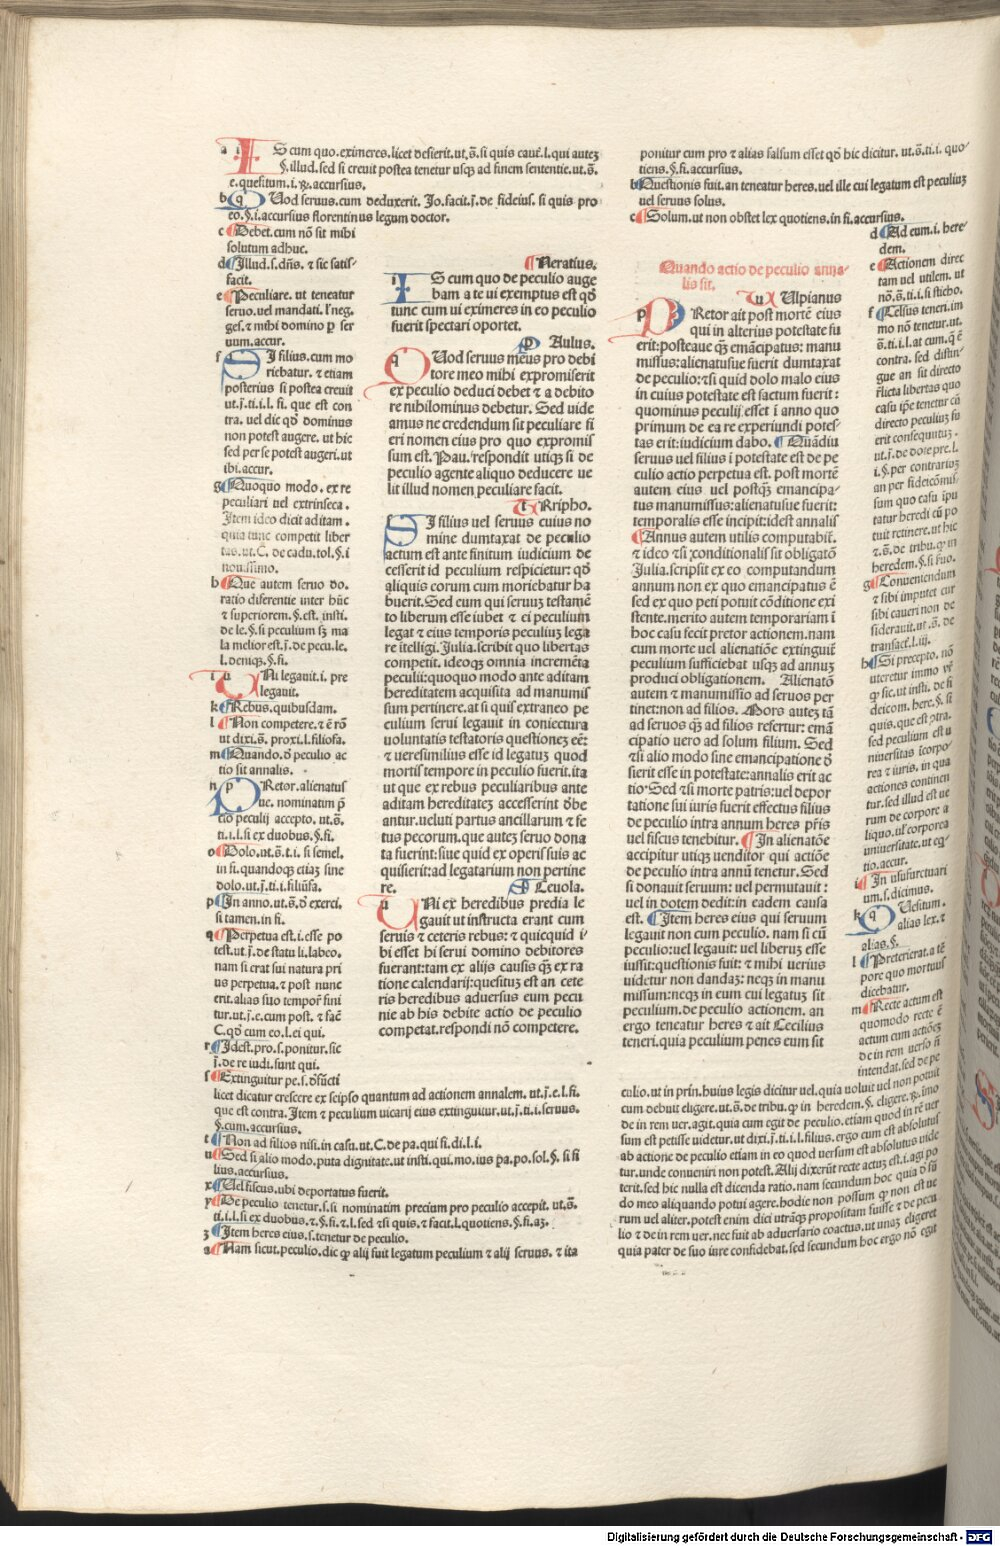 a i IS cum quo.eximeres.licet desierit.ut.s̄.si quis cauť.l.qui autez
§.illud.sed si creuit postea tenetur usq̨ ad finem sententie.ut.s̄.
e.quesitum.i.ꝶ.accursius.
b q Uod seruus.cum deduxerit. Jo.facit.j̄.de fideius. si quis pro
eo.§.i.accursius florentinus legum doctor.
c Debet.cum nō sit mihi
solutum adhuc.
d Illud.s.dn̄s. ⁊ sic satis⸗
facit.
e Peculiare. ut teneatur
seruo.uel mandati. l'neg.
ges. ⁊ mihi domino ꝑ ser
uum.accur.
f s SI filius.cum mo
riebatur. ⁊ etiam
posterius si postea creuit
ut.j̄.ti.i.l. fi. que est con
tra. uel dic qď dominus
non potest augere. ut hic
sed per se potest augeri.ut
ibi.accur.
g Quoquo modo. ex re
peculiari uel extrinseca.
Item ideo dicit aditam.
quia tunc competit liber
tas.ut.C. de cadu.tol.§.i
nouissimo.
h Que autem seruo do.
ratio diferentie inter hūc
⁊ superiorem.§.est. insti.
de le.§.si peculium sꝫ ma
la melior est.j̄.de pecu.le.
l.deniq̨.§.fi.
i u Ni legauit.i. pre
legauit.
k Rebus.quibusdam.
l Non competere.⁊ ē rō
ut dixi.s̄. proxi.l.filiofa.
m Quando.ď peculio ac
tio sit annalis.
n p Retor.alienatus
ue. nominatim p̄
cio peculij accepto. ut.s̄.
ti.i.l.si ex duobus.§.fi.
o Dolo.ut.s̄.t.i. si semel.
in fi.quandoq̨ etiaz sine
dolo.ut.j̄.ti.i.filiūfa.
p In anno.ut.s̄.ď exerci.
si tamen.in fi.
q Perpetua est.i.esse po
test.ut.j̄.de statu li.labeo.
nam si erat sui natura pri
us perpetua.⁊ post nunc
erit.alias suo tempoř fini
tur.ut.j̄.e.cum post. ⁊ faĉ
C.qď cum eo.l.ei qui.
r Idest.pro.s.ponitur.sic
j̄.de re iudi.sunt qui.
s Extinguitur pe.s.ďfūcti
licet dicatur crescere ex seipso quantum ad actionem annalem. ut.j̄.e.l.fi.
que est contra. Item ⁊ peculium uicarij eius extinguitur.ut.j̄.ti.i.seruus.
§.cum.accursius.
t Non ad filios nisi.in casu.ut.C.de pa.qui fi.di.l.i.
u Sed si alio modo.puta dignitate.ut insti.qui.mo.ius p̄a.po.sol.§. si fi
lius.accursius.
x Uel fiscus.ubi deportatus fuerit.
y De peculio tenetur.s.si nominatim precium pro peculio accepit. ut.s̄.
ti.i.l.si ex duobus.⁊.§.fi.⁊.l.sed ⁊si quis.⁊ facit.l.quotiens.§.fi.a3.
z Item heres eius.s.tenetur de peculio.
a Nam sicut.peculio.dic ꝙ alij fuit legatum peculium ⁊ alij seruus. ⁊ ita
Neratius.
i IS cum quo de peculio auge
bam a te ui exemptus est qď
tunc cum ui eximeres in eo peculio
fuerit spectari oportet.
P Aulus.
q QUod seruus meus pro debi
tore meo mihi expromiserit
ex peculio deduci debet ⁊ a debito
re nihilominus debetur. Sed uide
amus ne credendum sit peculiare fi
eri nomen eius pro quo expromis
sum est. Pau. respondit utiq̨ si de
peculio agente aliquo deducere ue
lit illud nomen peculiare facit.
T Rripho.
f SI filius uel seruus cuius no
mine dumtaxat de peculio
actum est ante finitum iudicium de
cesserit id peculium respicietur: qď
aliquis eorum cum moriebatur ha
buerit. Sed eum qui seruuꝫ testamē
to liberum esse iubet ⁊ ei peculium
legat ⁊ eius temporis peculiuꝫ lega
re ītelligi. Julia.scribit quo libertas
competit. ideoq̨ omnia incremēta
peculii:quoquo modo ante aditam
hereditatem acquisita ad manumis
sum pertinere.at si quis extraneo pe
culium serui legauit in coniectura
uoluntatis testatoris questionez eē:
⁊ uerisimilius esse id legatuꝫ quod
mortis tempore in peculio fuerit.ita
ut que ex rebus peculiaribus ante
aditam hereditatez accesserint ďbe
antur.ueluti partus ancillarum ⁊ fe
tus pecorum.que autez seruo dona
ta fuerint:siue quid ex operis suis ac
quisierit:ad legatarium non pertine
re.
S Ceuola.
u UNi ex heredibus predia le
gauit ut instructa erant cum
seruis ⁊ ceteris rebus: ⁊ quicquid i'
bi esset hi serui domino debitores
fuerant:tam ex alijs causis q̄ꝫ ex ra
tione calendarij:quesituꝫ est an cete
ris heredibus aduersus eum pecu
nie ab his debite actio de peculio
competat.respondi nō competere.
ponitur cum pro ⁊ alias falsum esset qď hic dicitur. ut.s̄.ti.i. quo⸗
tiens.§.fi.accursius.
b Questionis fuit.an teneatur heres.uel ille cui legatum est peculiuꝫ
uel seruus solus.
c Solum.ut non obstet lex quotiens.in fi.accursius.
Quando actio de peculio anna⸗
lis sit.
U Ulpianus
p PRetor ait post mortē eius
qui in alterius potestate fu
erit:posteaue q̄ꝫ emācipatus: manu
missus:alienatusue fuerit dumtaxat
de peculio:⁊si quid dolo malo eius
in cuius potestate est factum fuerit:
quominus peculij esset ī anno quo
primum de ea re experiundi potes⸗
tas erit:iudicium dabo. Quādiu
seruus uel filius ī potestate est de pe
culio actio perpetua est. post mortē
autem eius uel postq̄ꝫ emancipa⸗
tus manumissus:alienatusue fuerit:
temporalis esse incipit:idest annalis
Annus autem utilis computabiť.
⁊ ideo ⁊si ꝯditionalis sit obligatō
Julia.scripsit ex eo computandum
annum non ex quo emancipatus ē
sed ex quo peti potuit cōditione exi
stente.merito autem temporariam ī
hoc casu fecit pretor actionem.nam
cum morte uel alienatiōe extinguiť
peculium sufficiebat usq̨ ad annuꝫ
produci obligationem. Alienatō
autem ⁊ manumissio ad seruos per
tinet:non ad filios. Mors autez tā
ad seruos q̄ꝫ ad filios refertur: emā
cipatio uero ad solum filium. Sed
⁊si alio modo sine emancipatione ď
sierit esse in potestate:annalis erit ac
tio. Sed ⁊si morte patris:uel depor
tatione sui iuris fuerit effectus filius
de peculio intra annum heres pr̄is
uel fiscus tenebitur. In alienatōe
accipitur utiq̨ uenditor qui actiōe
de peculio intra annū tenetur. Sed
si donauit seruum: uel permutauit:
uel in dotem dedit:in eadem causa
est. Item heres eius qui seruum
legauit non cum peculio. nam si cū
peculio:uel legauit: uel liberuꝫ esse
iussit:questionis fuit: ⁊ mihi uerius
uidetur non dandaꝫ: neq̨ in manu
missum:neq̨ in eum cui legatuꝫ sit
peculium.de peculio actionem. an
ergo teneatur heres ⁊ ait Cecilius
teneri.quia peculium penes eum sit
d Ad eum.i. here⸗
dem.
e Actionem direc
tam uel utilem. ut
nō.s̄.ti.i.si sticho.
f Celsus teneri.im
mo nō tenetur.ut.
s̄.ti.i.l.at cum.q̄ ē
contra. sed distin⸗
gue an sit directo
r̄licta libertas quo
casu ip̄e tenetur cū
directo peculiuꝫ su
erit consequutuꝫ.
ut.j̄.de dote pre.l.
i.§.per contrariuꝫ
an per fideicōmis⸗
sum quo casu ipu
tatur heredi cū po
tuit retinere.ut hic
⁊.s̄.de tribu.ꝙ in
heredem.§.si suo.
g Conuentendum
⁊ sibi imputet cur
sibi caueri non de
siderauit.ut.s̄. de
transact̄.l.iij.
h Si precepto. nō
uteretur immo vr̄
ꝙ sic.ut insti. de fi
deicom. here.§. si
quis.que est ꝯtra.
sed peculium est u
niuersitas īcorpo⸗
rea ⁊ iuris. in qua
actiones continen
tur.sed illud est ue
rum de corpore a
liquo. ul' corporea
uniuersitate.ut eq̨⸗
tio.accur.
i In usufructuari
um.s.dicimus.
k q Uesitum.
alias lex.⁊
alias.§.
l Preterierat.a tē
pore quo mortuus
dicebatur.
m Recte actum est
quomodo recte ē
actum cum actioeꝫ
de in rem uerso nī
intendat.sed de pe
culio.ut in prin.huius legis dicitur uel.quia uoluit uel non potuit
cum debuit eligere.ut.s̄.de tribu.ꝙ in heredem.§. eligere.ꝶ.īmo
de in rem uer.agit.quia cum egit de peculio.etiam quod in rē uer
sum est petisse uidetur.ut dixi.j̄.ti.i.l.filius.ergo cum est absolutus
ab actione de peculio etiam in eo quod uersum est absolutus uide
tur.unde conueniri non potest.Alij dixerūt recte actuꝫ est.i.agi po
terit.sed hic nulla est dicenda ratio.nam secundum hoc quia ď sū
do meo aliquando potui agere.hodie non possum ꝙ non est ue
rum uel aliter.potest enim dici utrāq̨ propositam fuisse ⁊ de pecu
lio ⁊ de in rem uer.nec fuit ab aduersario coactus.ut unaꝫ eligeret
quia pater de suo iure confidebat.sed secundum hoc ergo nō egit
Digitalisierung gefördert durch die Deutsche Forschungsgemeinschaft - DFG